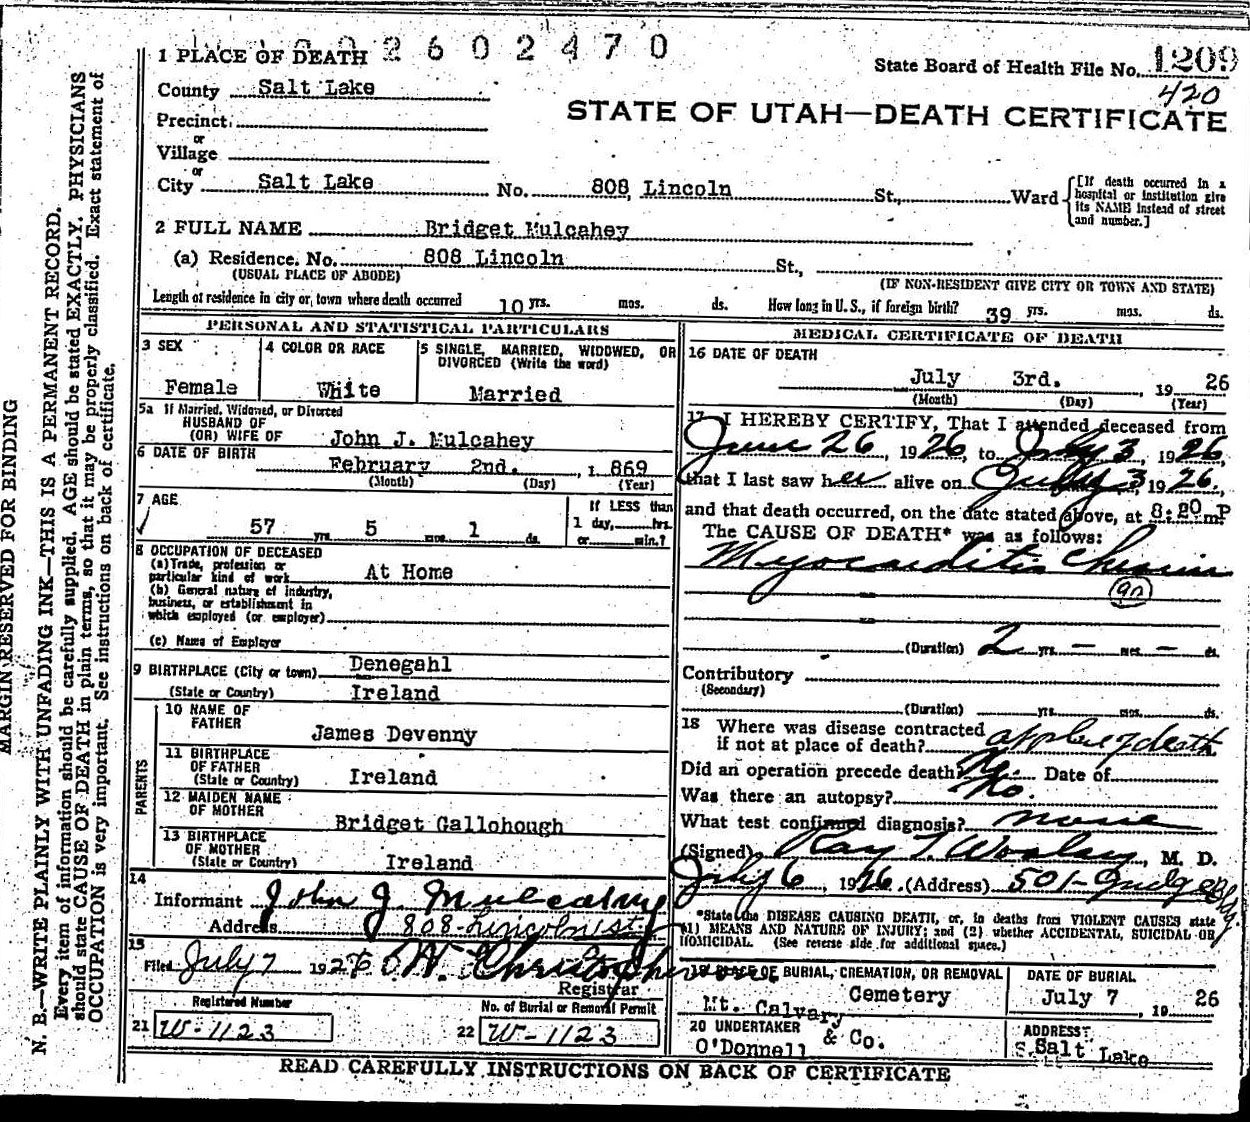 2602470
State Board of Health File No. 1209
420
STATE OF UTAH—DEATH CERTIFICATE
1 PLACE OF DEATH
County Salt Lake
Precinct
or
Village
or
City Salt Lake No. 808 Lincoln St., Ward
[If death occurred in a
hospital or institution give
its NAME instead of street
and number.]
2 FULL NAME Bridget Mulcahey
(a) Residence. No. 808 Lincoln St.,
(USUAL PLACE OF ABODE) (IF NON-RESIDENT GIVE CITY OR TOWN AND STATE)
Length of residence in city or town where death occurred 10 yrs. mos. ds. How long in U.S., if foreign birth? 39 yrs. mos. ds.
PERSONAL AND STATISTICAL PARTICULARS
3 SEX
Female
4 COLOR OR RACE
White
5 SINGLE, MARRIED, WIDOWED, OR
DIVORCED (Write the word)
Married
5a If Married, Widowed, or Divorced
HUSBAND OF
(OR) WIFE OF John J. Mulcahey
6 DATE OF BIRTH
February 2nd. , 1 869
(Month) (Day) (Year)
7 AGE
57 yrs. 5 mos. 1 ds.
If LESS than
1 day, hrs.
or min.?
8 OCCUPATION OF DECEASED
(a) Trade, profession or
particular kind of work At Home
(b) General nature of industry,
business, or establishment in
which employed (or employer)
(c) Name of Employer
9 BIRTHPLACE (City or town) Denegahl
(State or Country) Ireland
PARENTS
10 NAME OF
FATHER
James Devenny
11 BIRTHPLACE
OF FATHER
(State or Country) Ireland
12 MAIDEN NAME
OF MOTHER
Bridget Gallohough
13 BIRTHPLACE
OF MOTHER
(State or Country) Ireland
14
Informant John J. Mulcahey
Address 808 Lincoln st.
15
Filed July 7 1926
Registrar
Registered Number
21 W-1123
No. of Burial or Removal Permit
22 W-1123
MEDICAL CERTIFICATE OF DEATH
16 DATE OF DEATH
July 3rd. , 19 26
(Month) (Day) (Year)
17 I HEREBY CERTIFY, That I attended deceased from
June 26, 1926, to July 3, 1926,
that I last saw her alive on July 3, 1926,
and that death occurred, on the date stated above, at 8:20 P m.
The CAUSE OF DEATH* was as follows:
Myocarditis Chronic
90
(Duration) 2 yrs. — mos. — ds.
Contributory
(Secondary)
(Duration) yrs. mos. ds.
18 Where was disease contracted
if not at place of death? at place of death
Did an operation precede death? No. Date of
Was there an autopsy? No.
What test confirmed diagnosis? none
(Signed) Ray T. Woolsey, M. D.
July 6, 1926. (Address) 501 Judge Bldg.
*State the DISEASE CAUSING DEATH, or, in deaths from VIOLENT CAUSES state
(1) MEANS AND NATURE OF INJURY; and (2) whether ACCIDENTAL, SUICIDAL OR
HOMICIDAL. (See reverse side for additional space.)
19 PLACE OF BURIAL, CREMATION, OR REMOVAL
Mt. Calvary Cemetery
DATE OF BURIAL
July 7, 19 26
20 UNDERTAKER
O'Donnell & Co.
ADDRESS
Salt Lake
READ CAREFULLY INSTRUCTIONS ON BACK OF CERTIFICATE
MARGIN RESERVED FOR BINDING
N. B.—WRITE PLAINLY WITH UNFADING INK—THIS IS A PERMANENT RECORD.
Every item of information should be carefully supplied. AGE should be stated EXACTLY. PHYSICIANS
should state CAUSE OF DEATH in plain terms, so that it may be properly classified. Exact statement of
OCCUPATION is very important. See instructions on back of certificate.